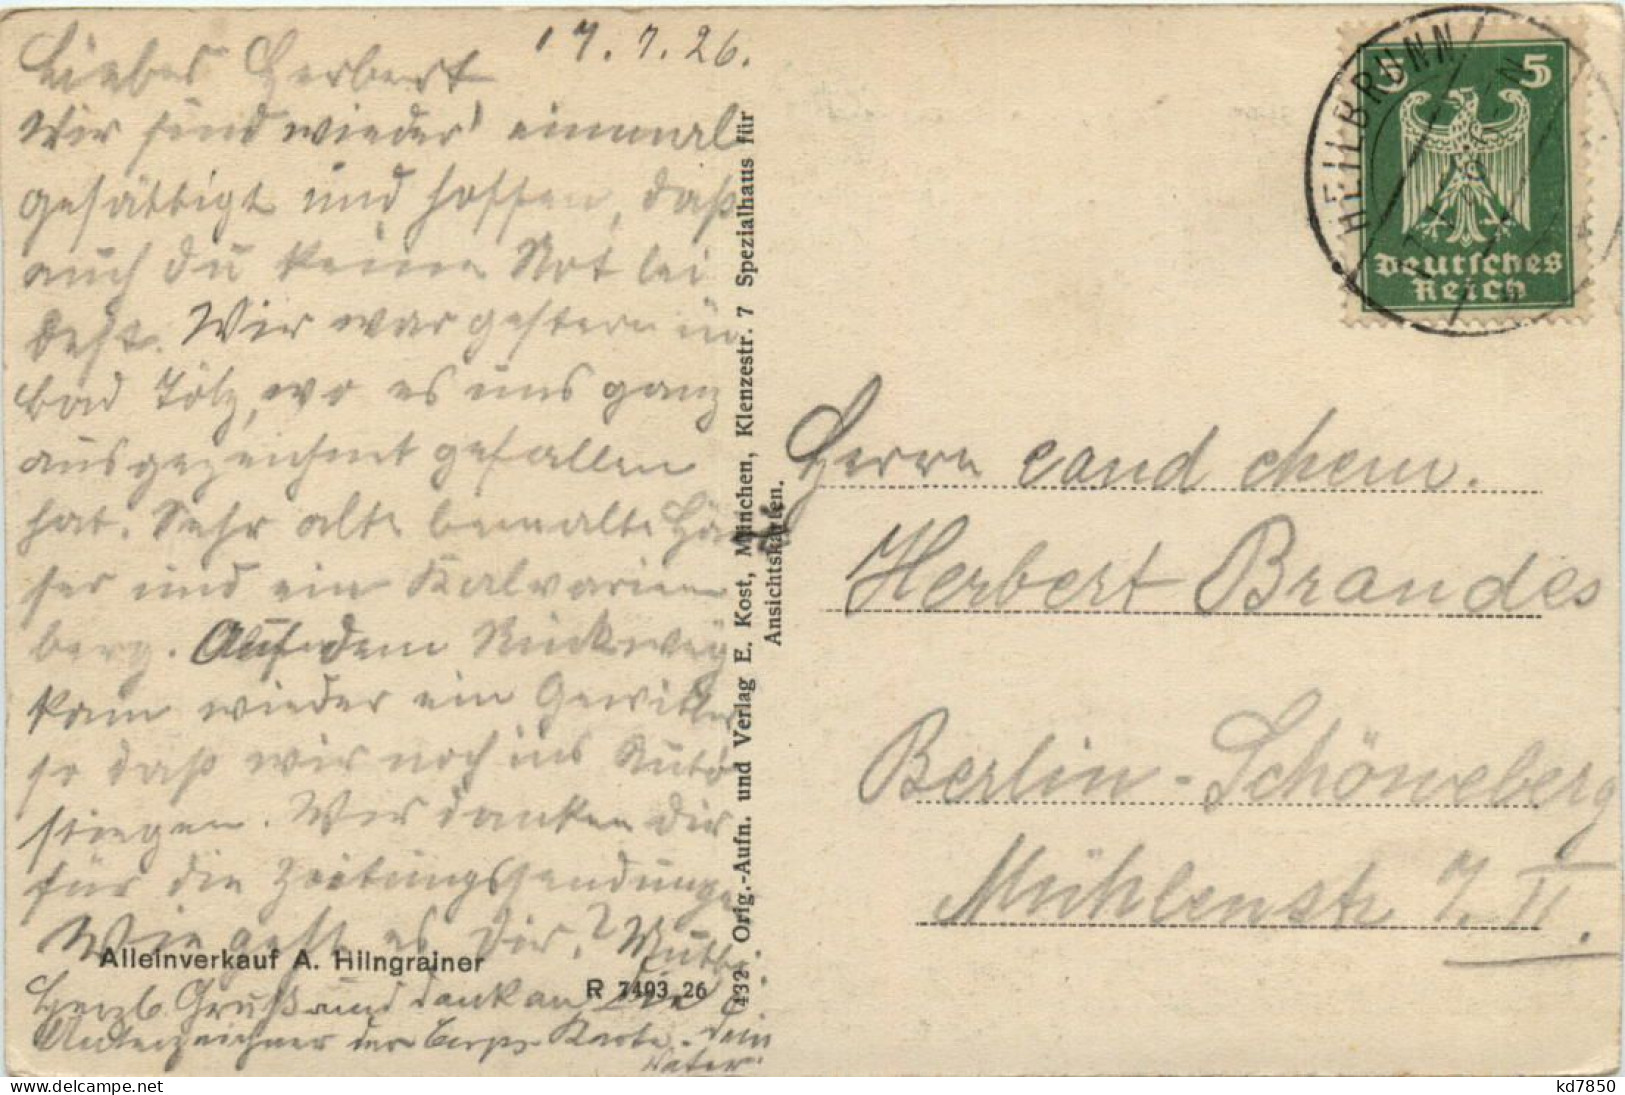 17.7.26.
Liebes Herbert
Wir sind wieder einmal
gesättigt und hoffen, daß
auch du keine Not lei
dest. Wir war gestern in
Bad Tölz, wo es uns ganz
ausgezeichnet gefallen
hat. Sehr alte bemalte Häu
ser und ein Kalvarien
berg. Auf dem Rückweg
kam wieder ein Gewitter
so daß wir noch ins Auto
stiegen. Wir danken dir
für die Zeitungssendungen
Wie geht es dir? Mutti.
Herzl. Gruß und Dank an die
Unterzeichner der Corps-Karte. Dein
Vater
Alleinverkauf A. Hilngrainer
R 7403 26
432 Orig.-Aufn. und Verlag E. Kost, München, Klenzestr. 7 Spezialhaus für
Ansichtskarten.
HEILBRUNN
5 5
Deutsches
Reich
Herrn cand chem.
Herbert Brandes
Berlin-Schöneberg
Mühlenstr 7. II.
kd7850
delcampe.net